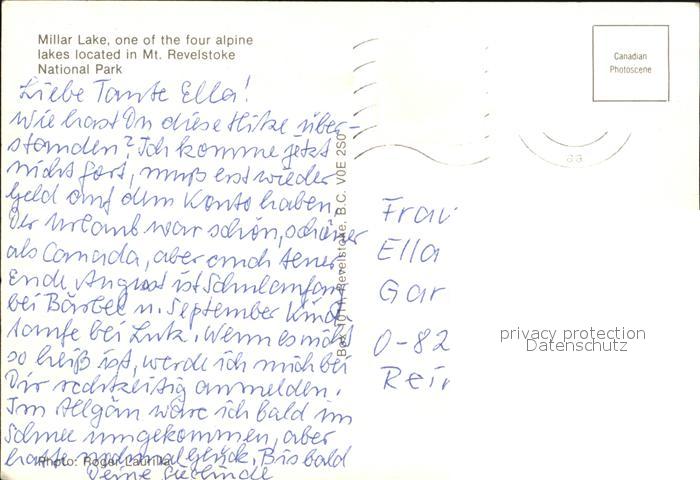 Millar Lake, one of the four alpine
lakes located in Mt. Revelstoke
National Park
Canadian
Photoscene
Liebe Tante Ella!
Wie hast Du diese Hitze über-
standen? Ich komme jetzt
nicht fort, muß erst wieder
Geld auf dem Konto haben.
Der Urlaub war schön, schöner
als Canada, aber auch teuer
Ende August ist Schulanfang
bei Bärbel u. September Kind
taufe bei Lutz. Wenn es nicht
so heiß ist, werde ich mich bei
Dir rechtzeitig anmelden.
Im Allgäu wäre ich bald im
Schnee umgekommen, aber
hatte nochmal Glück. Bis bald
Deine Sieglinde
Photo: Roger Laurilla
Revelstoke, B.C. V0E 2S0
Frau
Ella
Gar
O-82
privacy protection
Datenschutz